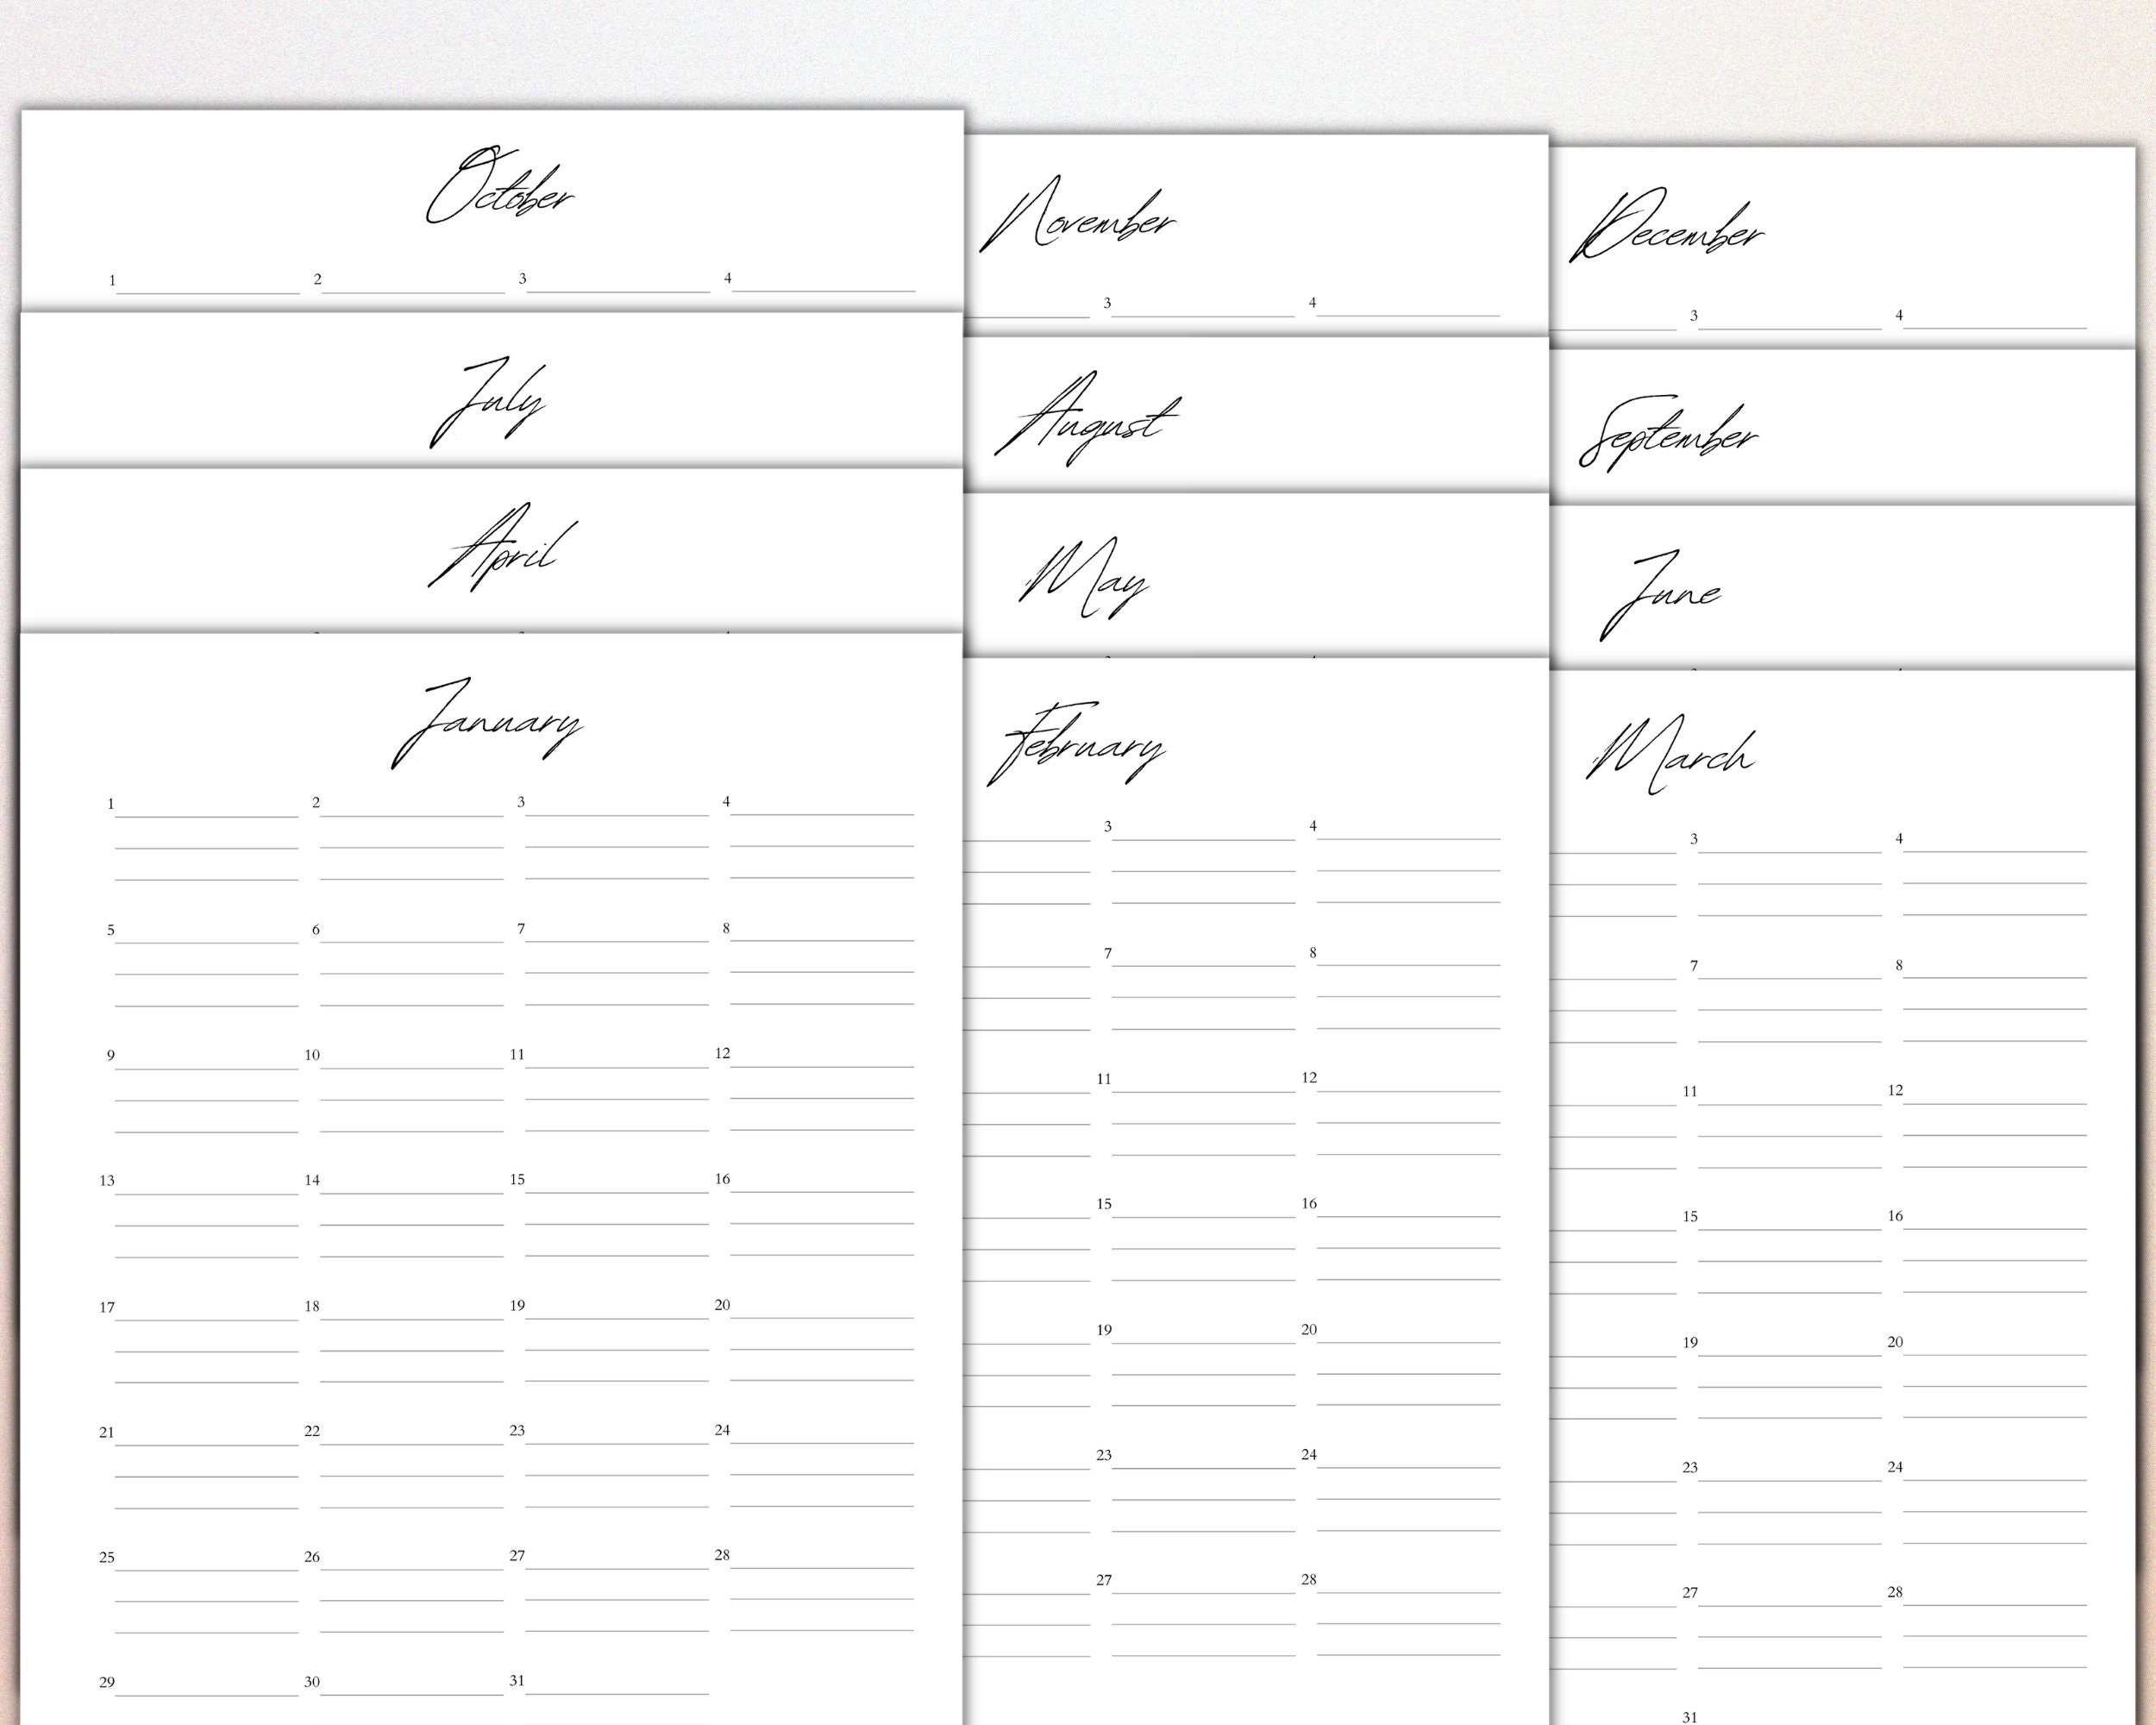 October
1 2 3 4
July
April
January
1 2 3 4
5 6 7 8
9 10 11 12
13 14 15 16
17 18 19 20
21 22 23 24
25 26 27 28
29 30 31
November
3 4
August
May
February
3 4
7 8
11 12
15 16
19 20
23 24
27 28
December
3 4
September
June
March
3 4
7 8
11 12
15 16
19 20
23 24
27 28
31